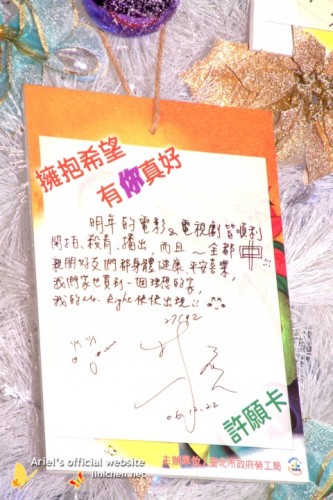 擁抱希望
有你真好
明年的電影&電視劇皆順利
開拍、殺青、播出，而且~全都中!!!
親朋好友們都身體健康、平安喜樂，
我們家也買到一個理想的家，
我的Mr. Right快快出現!!
06.12.22
許願卡
主辦單位：臺北市政府勞工局
Ariel's official website
linichen.net